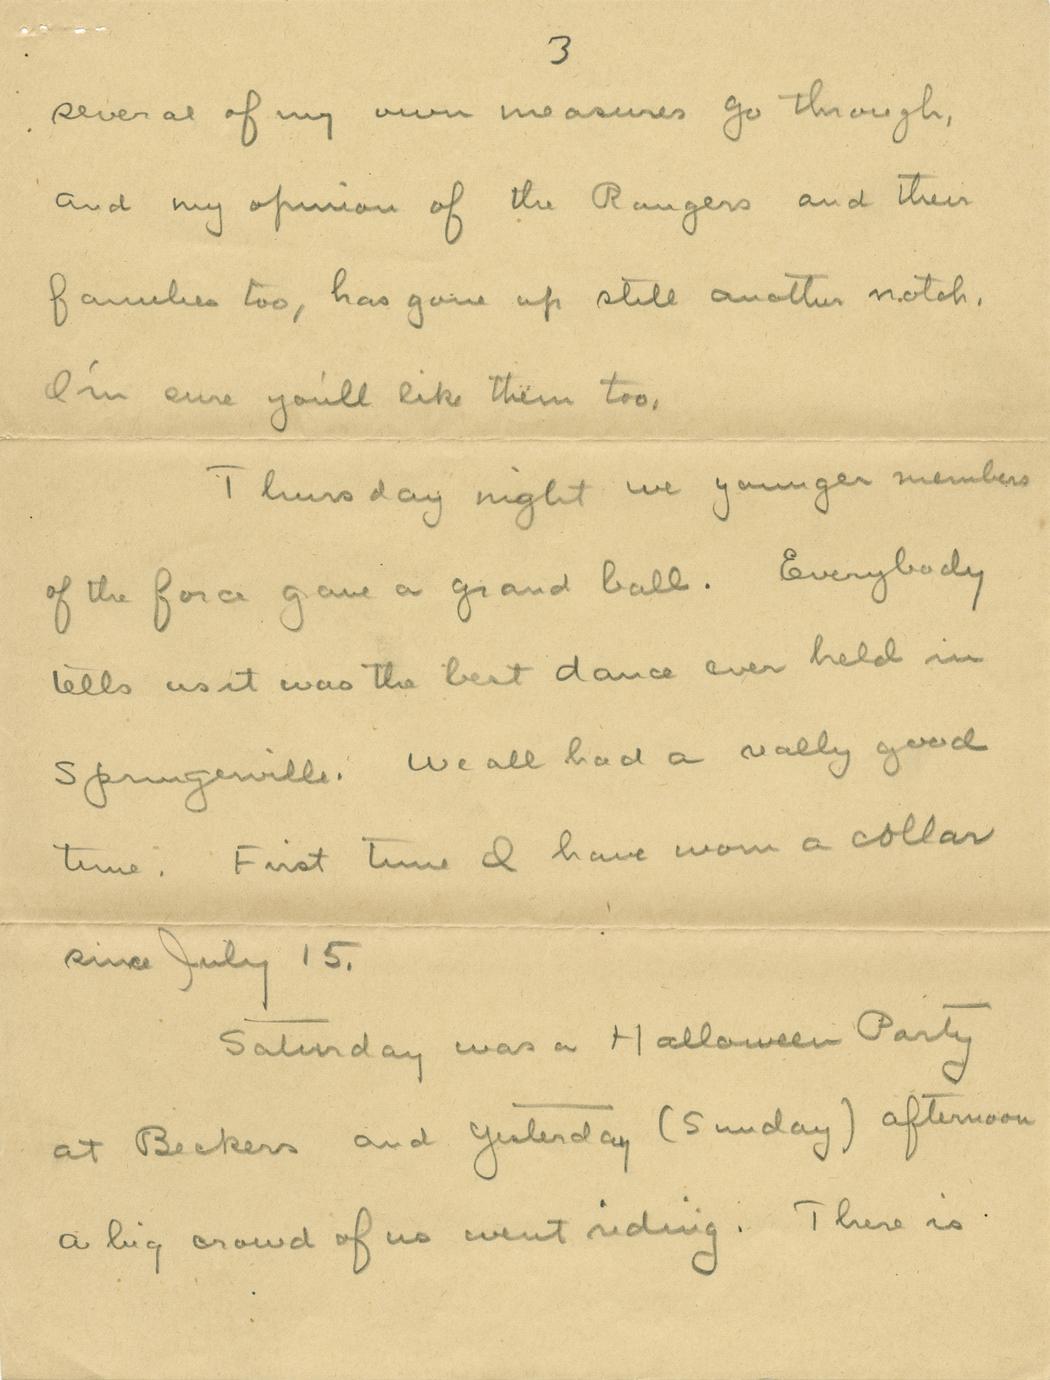 3
several of my own measures go through,
and my opinion of the Rangers and their
families too, has gone up still another notch.
I'm sure you'll like them too.
Thursday night we younger members
of the force gave a grand ball. Everybody
tells us it was the best dance ever held in
Springerville. We all had a really good
time. First time I have worn a collar
since July 15.
Saturday was a Halloween Party
at Beckers and yesterday (Sunday) afternoon
a big crowd of us went riding. There is